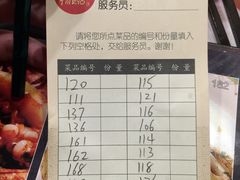 服务员:
请将您所点菜品的编号和份量填入
下列空格处，交给服务员。谢谢!
菜品编号 份量 菜品编号 份量
120 115
111 121
137 116
136 106
161 114
162 113
168 118